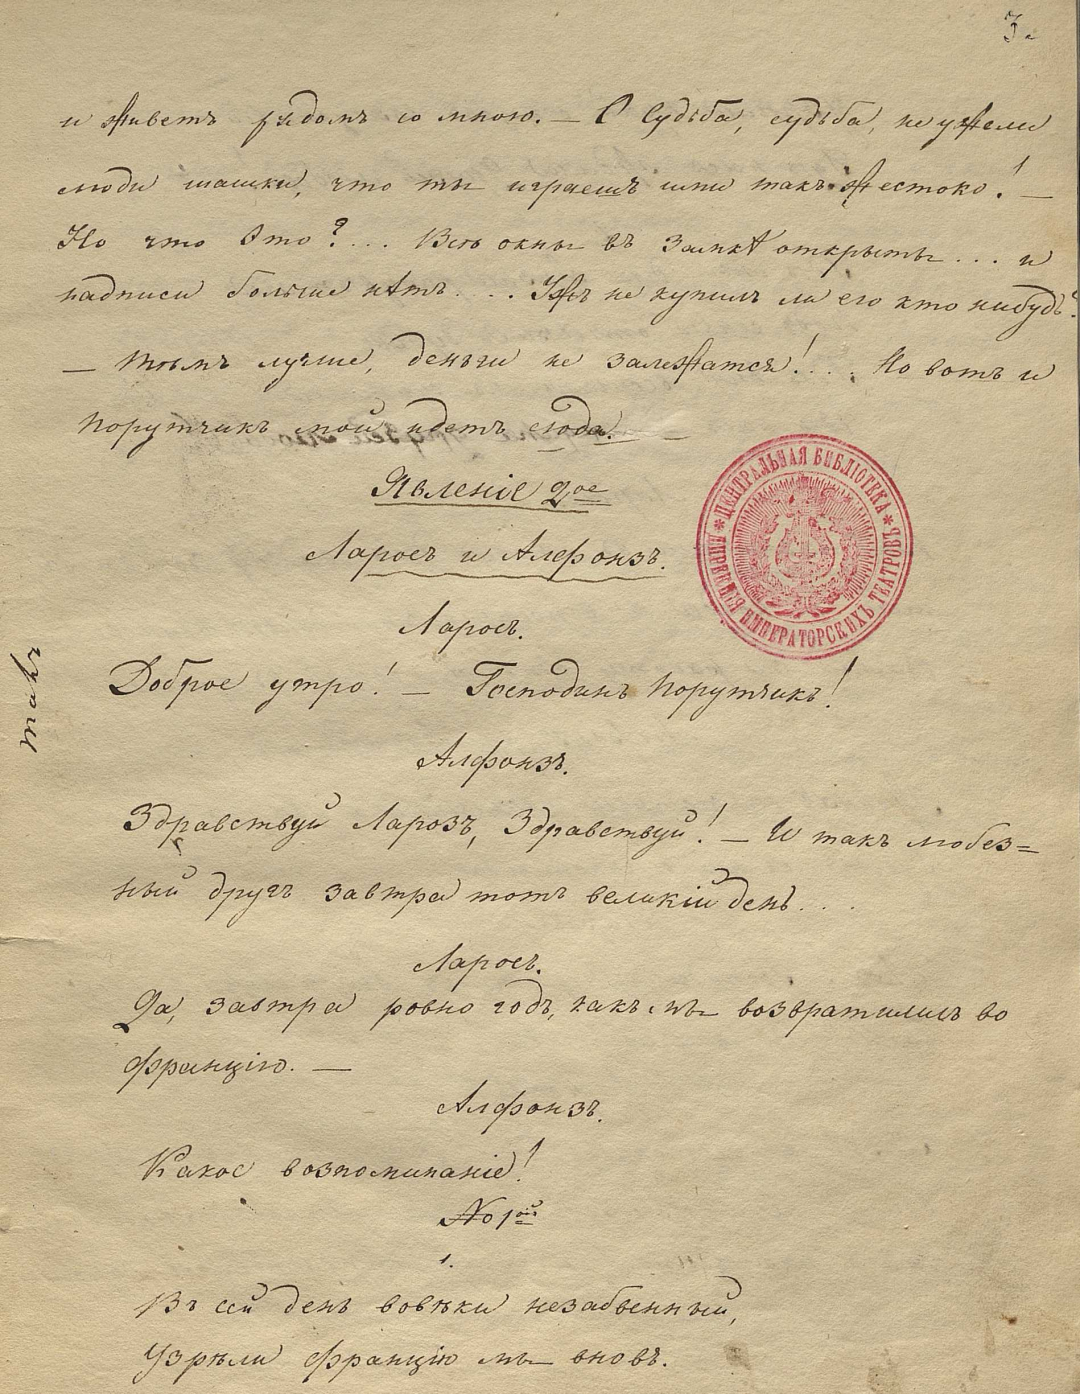 3.
и живетъ рядомъ со мною. — О Судьба, судьба, не ужели
люди шашки, что ты играешъ ими такъ жестоко! —
Но что это?... Всѣ окны въ замкѣ открыты... и
надписи больше нѣтъ.... Ужъ не купилъ ли его кто нибудь?
— Тѣмъ лучше, деньги не залежатся!... Но вотъ и
порутчикъ мой идетъ сюда. —
Явленіе 2ое
Ларосъ и Алфонзъ.
Ларосъ.
Доброе утро! — Господинъ порутчикъ!
Алфонзъ.
Здравствуй Ларозъ, Здравствуй! — И такъ любез=
ный другъ завтра тотъ великій день...
Ларосъ.
Да, завтра ровно годъ, какъ мы возвратились во
Францію. —
Алфонзъ.
Какое возпоминаніе!
No 1ой
1.
Въ сей день вовѣки незабвенный,
Узрѣли Францію мы вновь.
такъ
ЦЕНТРАЛЬНАЯ БИБЛІОТЕКА
ДИРЕКЦІЯ ИМПЕРАТОРСКИХЪ ТЕАТРОВЪ